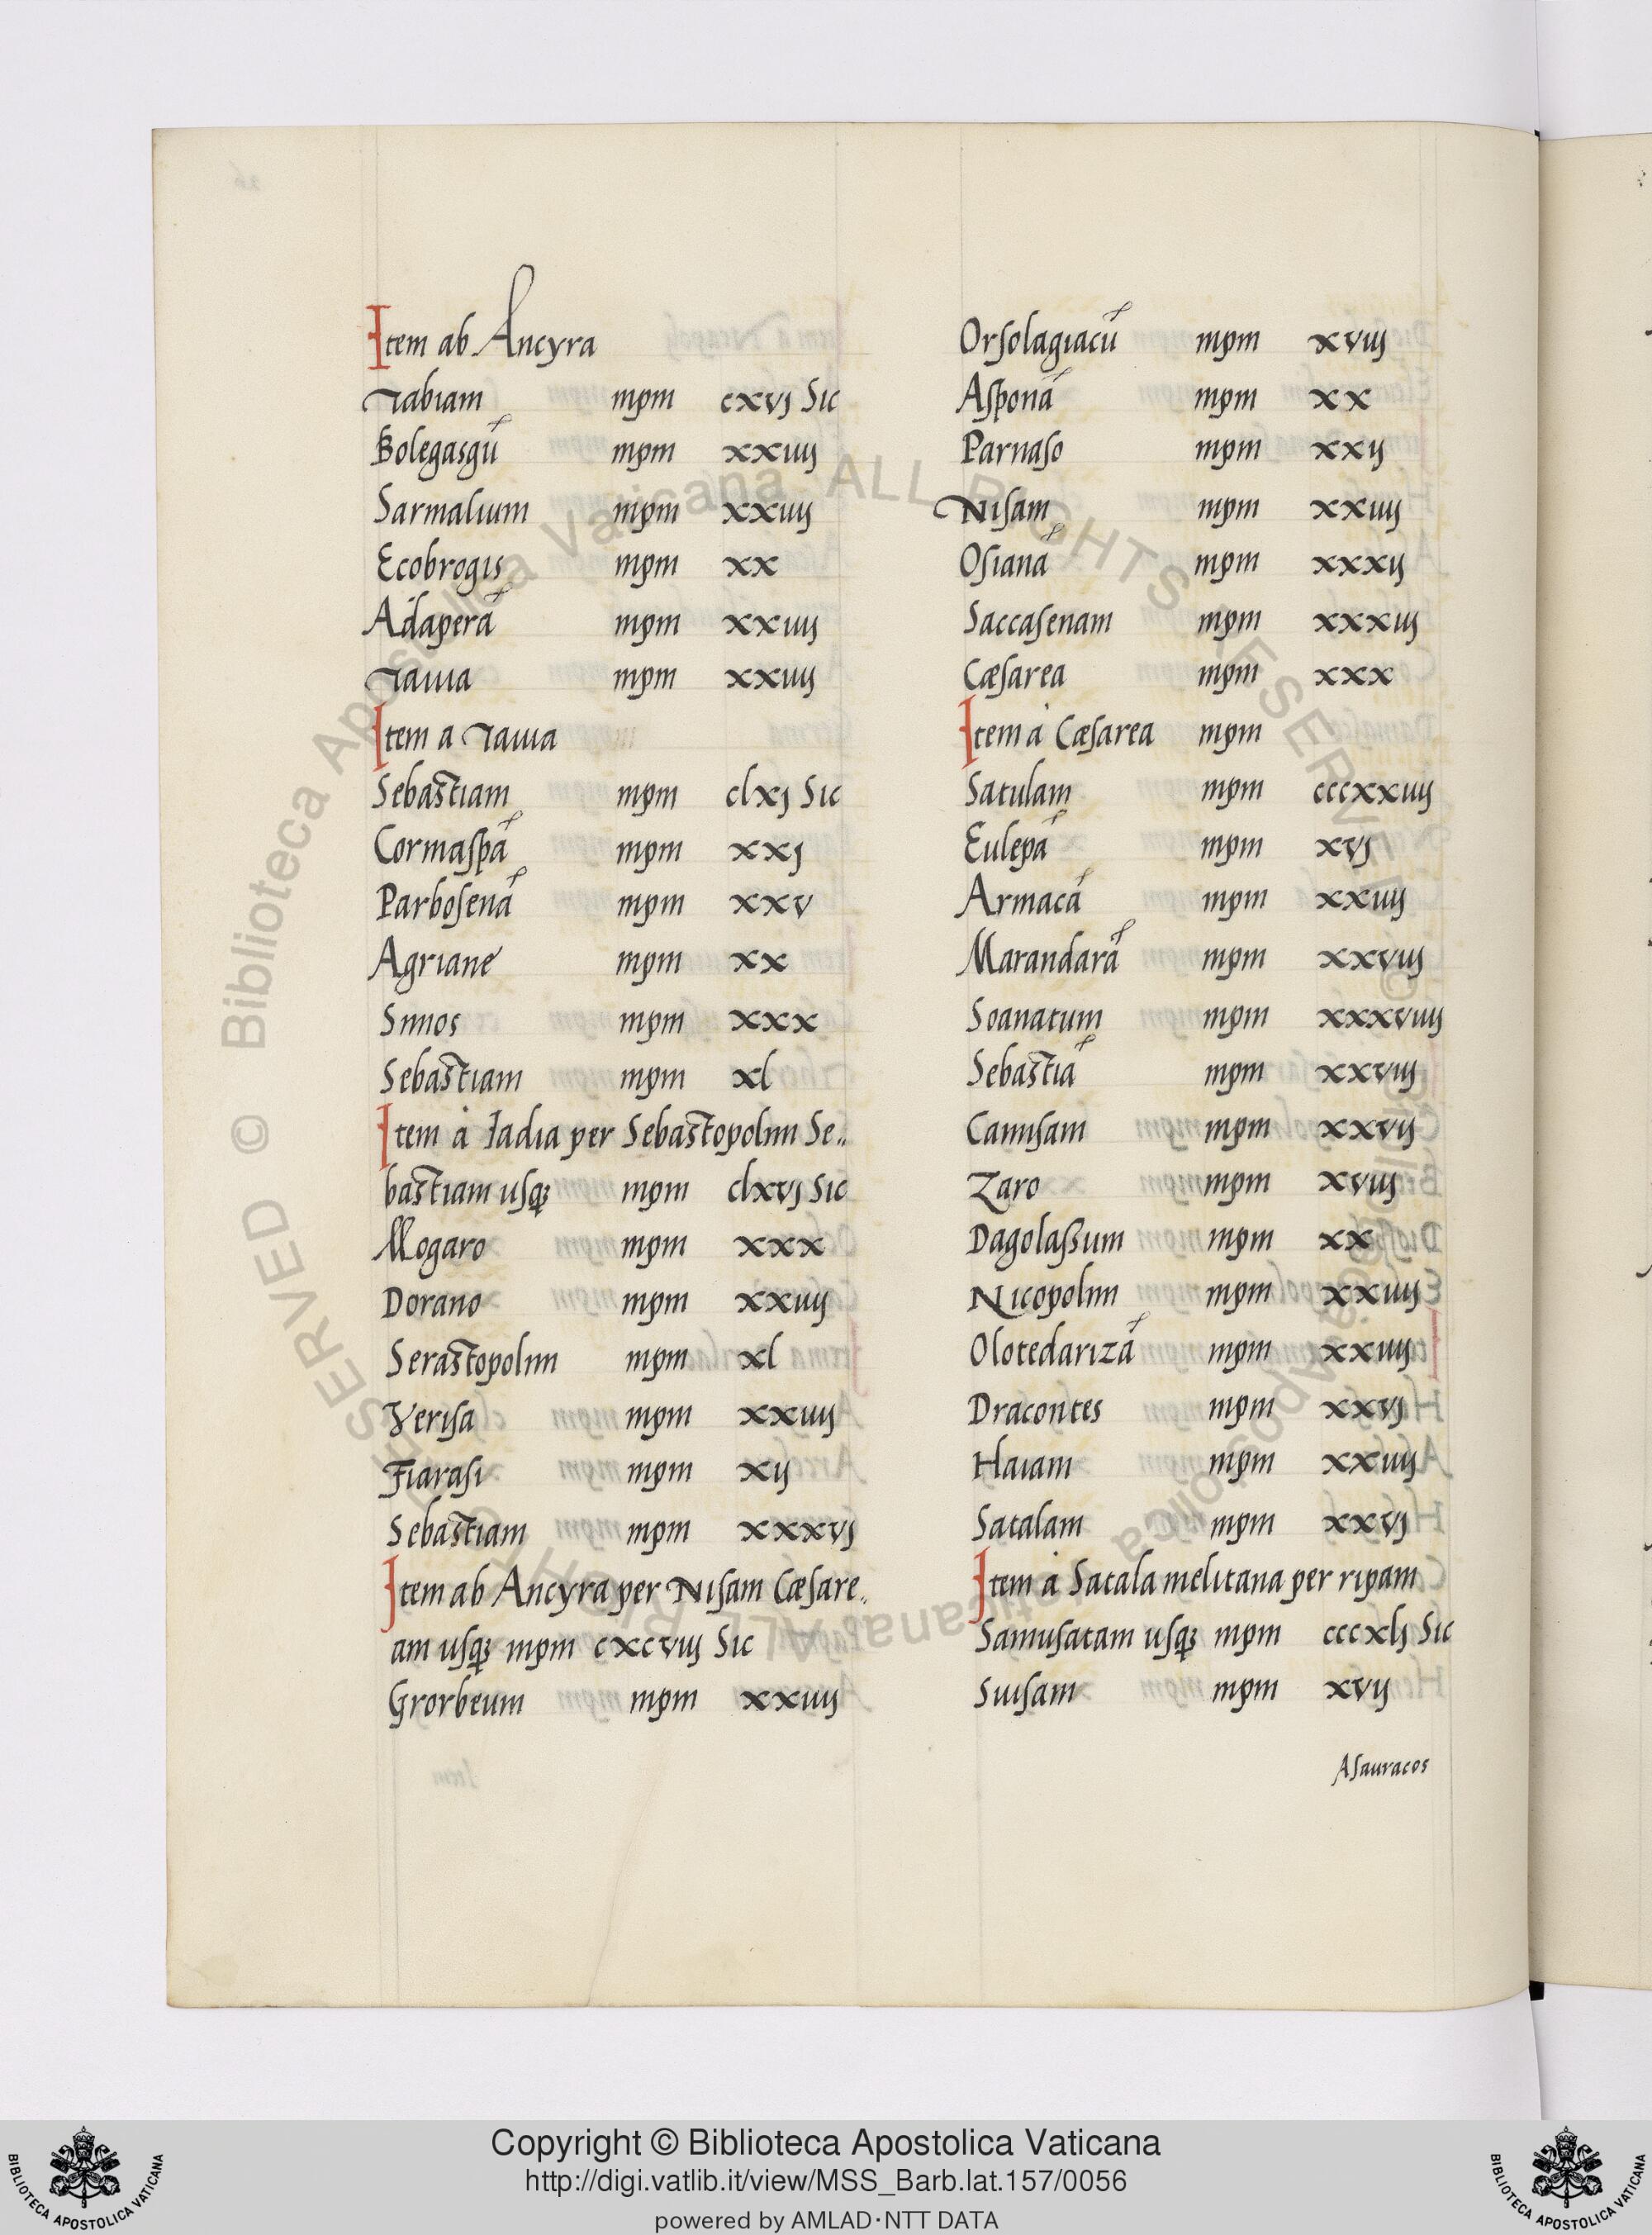 Item ab Ancyra
Tabiam mpm cxvj Sic
Bolegasgū mpm xxiiij
Sarmalium mpm xxiiij
Ecobrogis mpm xx
Adaperā mpm xxiiij
Tauia mpm xxiiij
Item a Tauia
Sebastiam mpm clxj Sic
Cormaſpā mpm xxj
Parboſenā mpm xxv
Agriane mpm xx
Simos mpm xxx
Sebastiam mpm xl
Item à Iadia per Sebastopolim Se„
bastiam uſq; mpm clxvj Sic
Mogaro mpm xxx
Dorano mpm xxiiij
Serastopolim mpm xl
Veriſa mpm xxiiij
Fiaraſi mpm xij
Sebastiam mpm xxxvj
Item ab Ancyra per Niſam Cæſare„
am uſq; mpm cxcviij Sic
Grorbeum mpm xxiiij
Orſolagiacū mpm xviij
Aſponā mpm xx
Parnaſo mpm xxij
Niſam mpm xxiiij
Oſianā mpm xxxij
Saccaſenam mpm xxxiij
Cæſarea mpm xxx
Item à Cæſarea mpm
Satulam mpm cccxxiiij
Eulepā mpm xvj
Armacā mpm xxiiij
Marandarā mpm xxviij
Soanatum mpm xxxviiij
Sebastiā mpm xxviij
Camiſam mpm xxvij
Zaro mpm xviij
Dagolaßum mpm xx
Nicopolim mpm xxiiij
Olotedarizā mpm xxiiij
Dracontes mpm xxvj
Haiam mpm xxiiij
Satalam mpm xxvj
Item à Satala melitana per ripam
Samuſatam uſq; mpm cccxlj Sic
Suiſam mpm xvij
Aſauracos
© Biblioteca Apostolica Vaticana ALL RIGHTS RESERVED
Copyright © Biblioteca Apostolica Vaticana
http://digi.vatlib.it/view/MSS_Barb.lat.157/0056
powered by AMLAD·NTT DATA
BIBLIOTECA APOSTOLICA VATICANA
BIBLIOTECA APOSTOLICA VATICANA